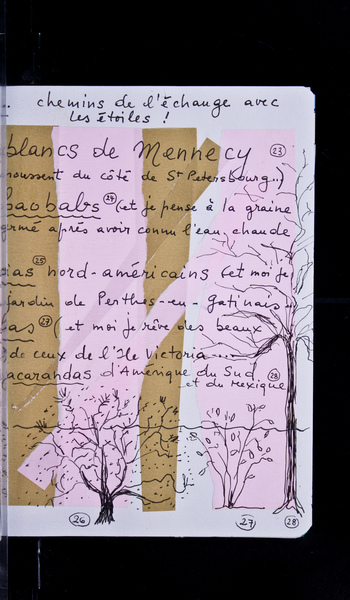 .. chemins de l'échange avec
les étoiles !
blancs de Mennecy (23)
poussent du côté de St Petersbourg..)
baobabs (24) (et je pense à la graine
germé après avoir connu l'eau chaude
(25)
nord-américains (et moi je
jardin de Perthes-en-Gatinais..
(27) (et moi je rêve des beaux
de ceux de l'Ile Victoria....
jacarandas d'Amérique du Sud (28)
et du Mexique
(26) (27) (28)